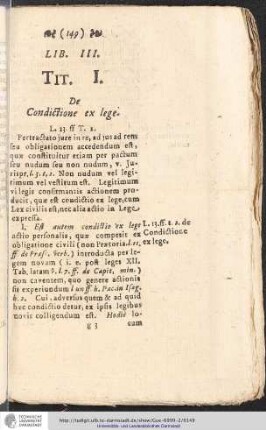 (149)
LIB. III.
TIT. I.
De
Condictione ex lege.
L. 23. ff T. 2.
Pertractato jure in re, ad jus ad rem
seu obligationem accedendum est,
quæ constituitur etiam per pactum
seu nudum seu non nudum, v. Ju-
rispr. l. 3. t. 2. Non nudum vel legi-
timum vel vestitum est. Legitimum
vi legis confirmantis actionem pro-
ducit, quæ est condictio ex lege, cum
Lex civilis est, nec alia actio in Lege
expressa.
I. Est autem condictio ex lege
actio personalis, quæ competit ex
obligatione civili (non Prætoria.
ff de Præsc. Verb.) introducta per le-
gem novam (i. e. post leges XII.
Tab. latam ff. de Capit. min.)
non caventem, quo genere actionis
sit experiundum l un ff h.
h. 2. Cui, adversus quem & ad quid
hæc condictio detur, ex ipsis legibus
novis colligendum est. Hodie lo-
L. 13. ff. t. 2. de
Condictione
ex lege.
g 3 cum
TECHNISCHE
UNIVERSITÄT
DARMSTADT
Universitäts- und Landesbibliothek Darmstadt